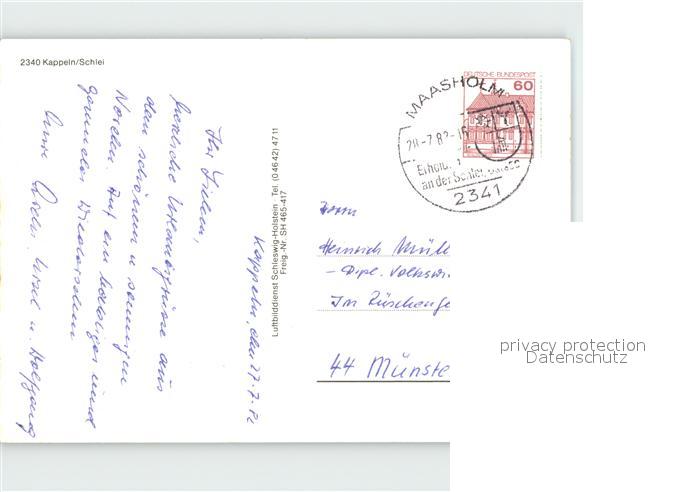 2340 Kappeln/Schlei
Kappeln, den 27.7.82
Ihr Lieben,
herzliche Urlaubsgrüsse aus
dem schönen u. sonnigen
Norden. Auf ein baldiges und
gesundes Wiedersehen
Eure
Ursel u. Wolfgang
Luftbilddienst Schleswig-Holstein Tel. (04642) 4711
Freig.-Nr. SH 465-417
DEUTSCHE BUNDESPOST
60
MAASHOLM
28.-7.82
an der Schlei
2341
Herrn
Heinrich Müll
- Dipl. Volkswi
Im
44 Münste
privacy protection
Datenschutz